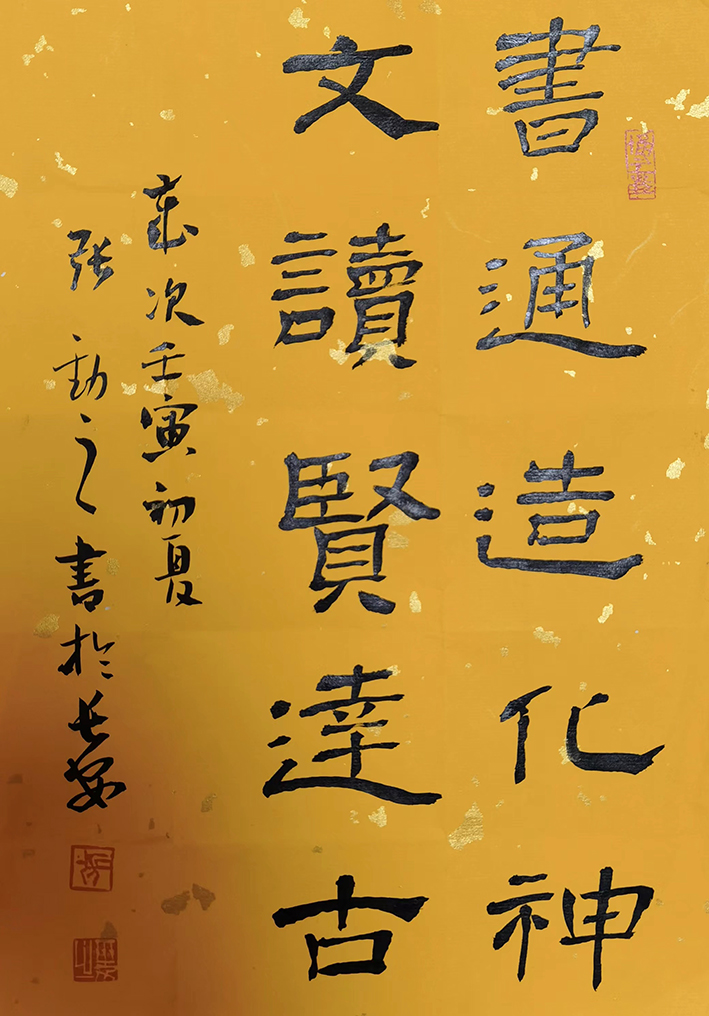 書通造化神
文讀賢達古
歲次壬寅初夏
張勳之書於長安